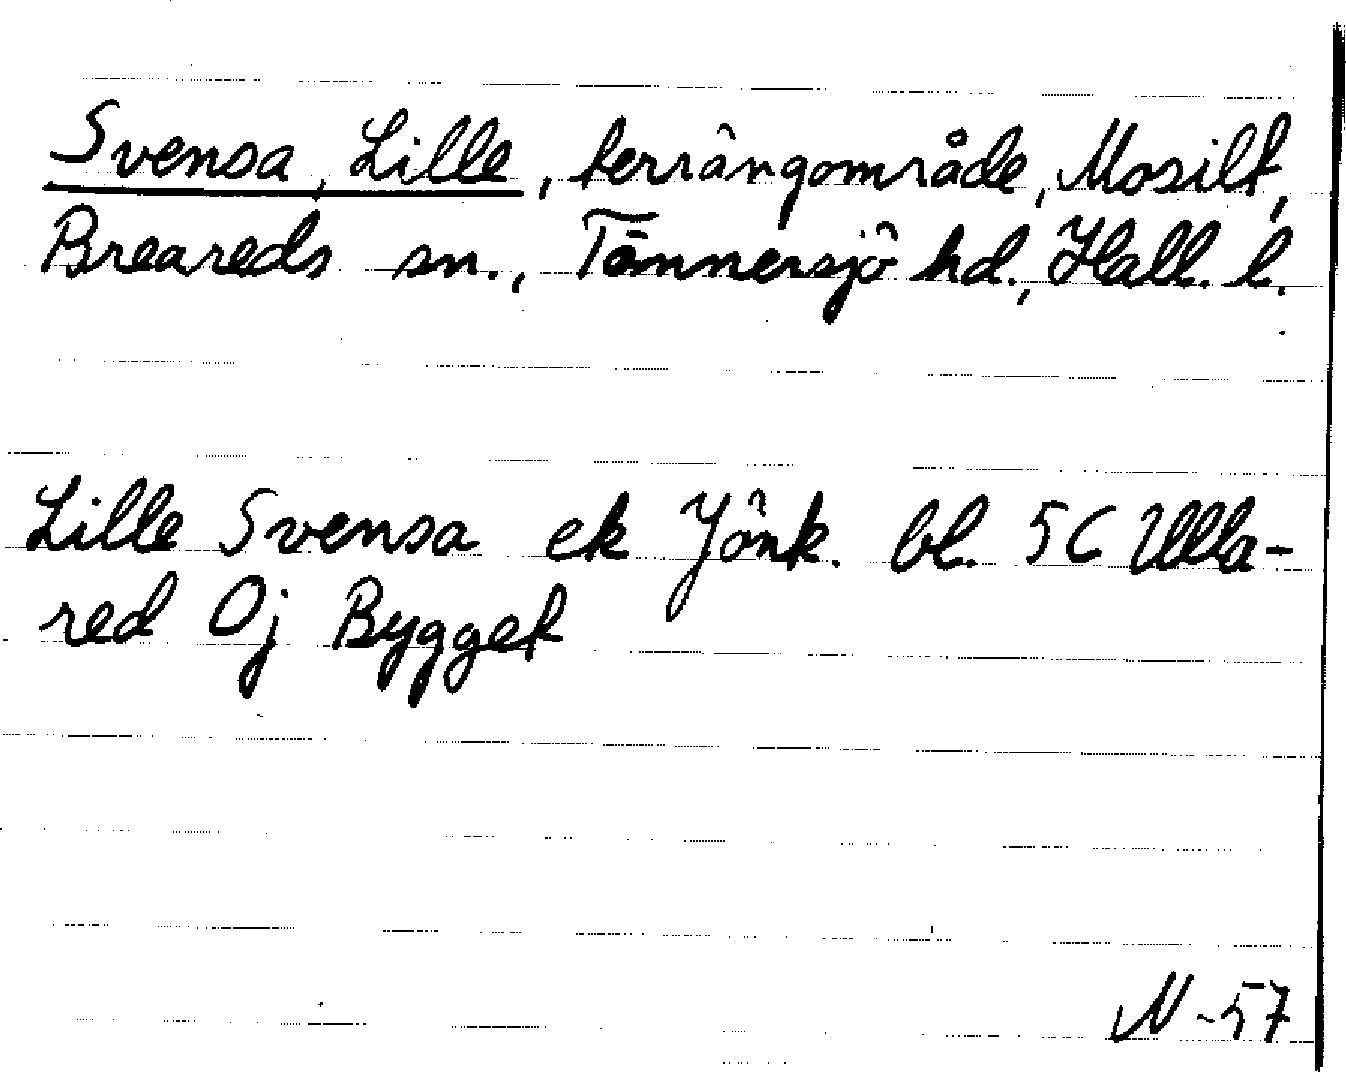 Svensa, Lille, terrängområde, Mosilt,
Breareds sn., Tönnersjö hd., Hall. l.
Lille Svensa ek Jönk. bl. 5C Ulla-
red Oj Bygget
N-57